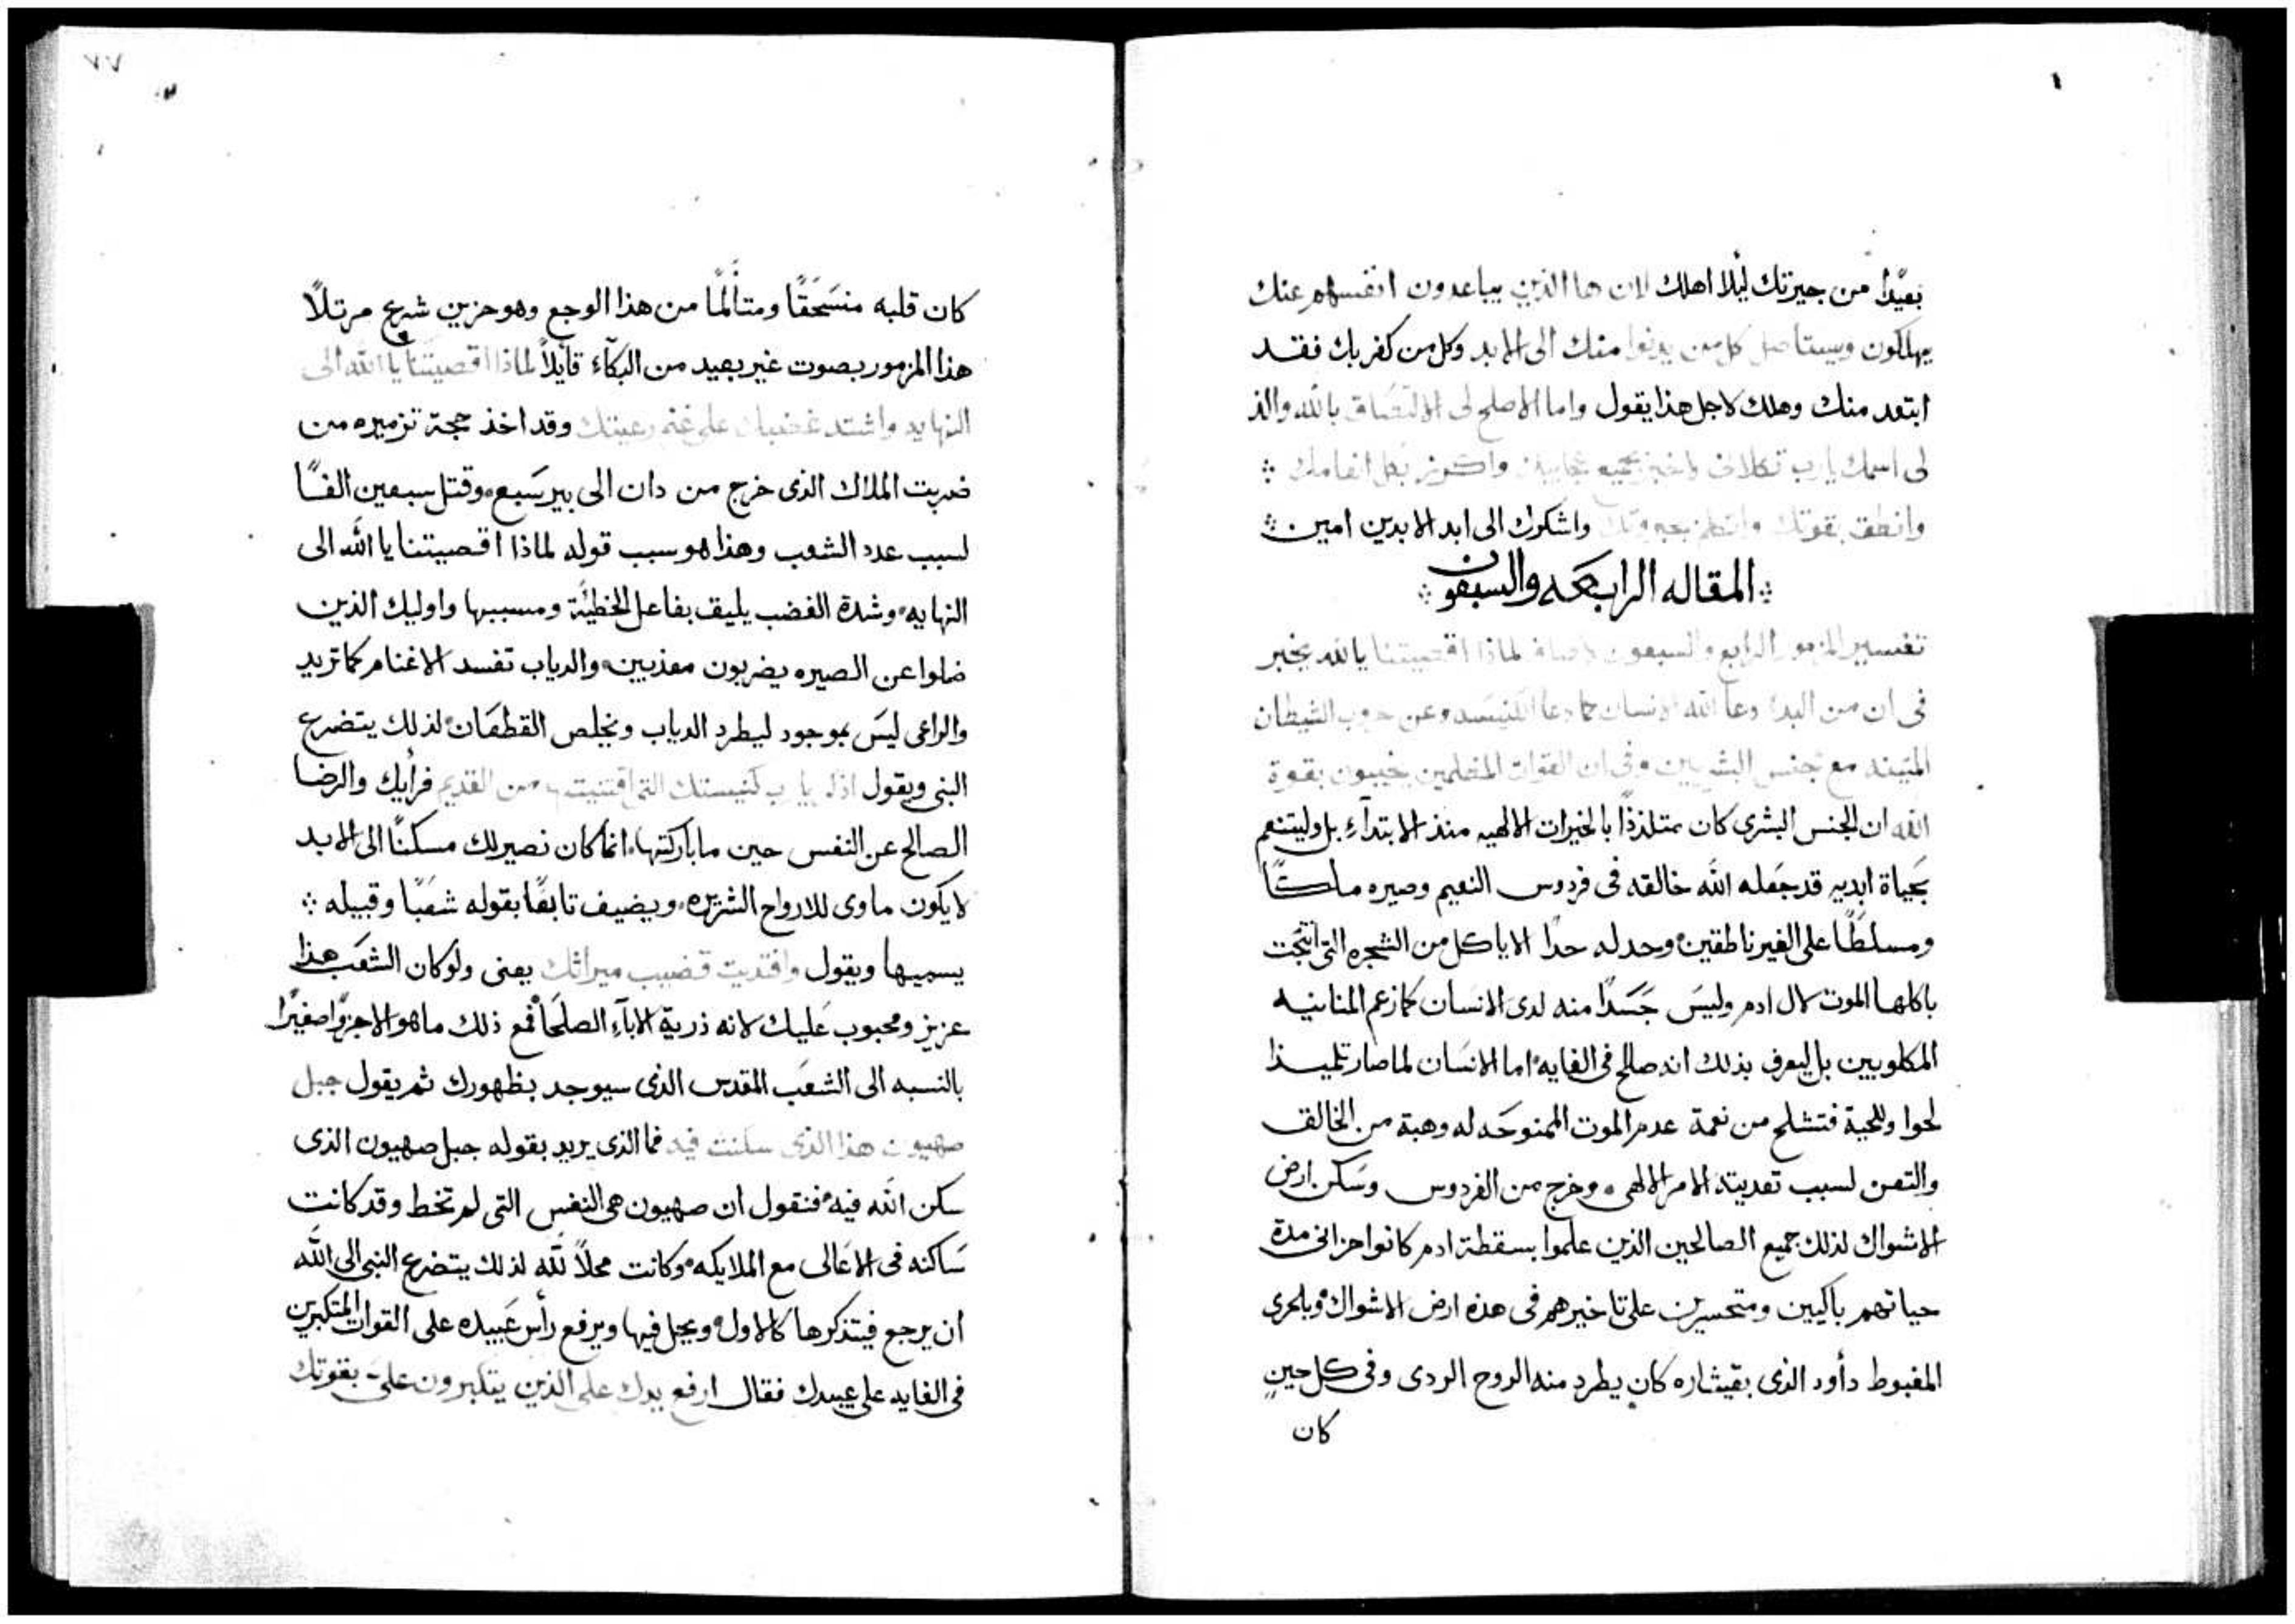 بعيدًا من جيرتك ليلا اهلك لان ها الذين يباعدون انفسهم عنك
يهلكون وسيستاصل كل من يدنوا منك الى الابد وكل من كفر بك فقد
ابتعد منك وهلك لاجل هذا يقول واما الاصلح لى الالتصاق بالله والذ
لى اسمك يارب تكلانى واخبر بجميع عجايبك واكرز بكل انعامك
وانطق بقوتك بجبروتك واشكرك الى ابد الابدين امين
المقاله الرابعه والسبعون
تفسير المزمور الرابع والسبعون لاصاف لماذا اقصيتنا يا الله يخبر
فى ان من البدا دعا الله الانسان كما دعا الكنيسه وعن حرب الشيطان
مع جنس البشريين وفى ان القوات يخيبون بقوة
الله ان الجنس البشرى كان متلذذًا بالخيرات الالهيه منذ الابتدآء بل وليتنعم
بحياة ابديه قد جعله الله خالقه فى فردوس النعيم وصيره ملكًا
ومسلطًا على الغير ناطقين وحد له حدًا الا ياكل من الشجره التى انتجت
باكلها الموت لال ادم وليس جَسَدًا منه لدى الانسان كما زعم المنانيه
المكلوبين بل ليعرف بذلك انه صالح فى الغايه اما الانسان لما صار تلميذا
لحوا وللحية فتشلح من نعمة عدم الموت الممنوحَه له وهبة من الخالق
والتعن لسبب تعديته الامر الالهى وخرج من الفردوس وسَكن ارض
الاشواك لذلك جميع الصالحين الذين علموا بسقطة ادم كانوا حزانى مدة
حياتهم باكيين ومتحسرين على تاخيرهم فى هذه ارض الاشواك وبلحرى
المغبوط دأود الذى بقيثاره كان يطرد منه الروح الردى وفى كل حينٍ
كان
٧٧
كان قلبه منسَحَقًا ومتألمًا من هذا الوجع وهو حزين شرع مرتلاً
هذا المزمور بصوت غير بعيد من البكآء قايلاً لماذا اقصيتنا يا الله الى
النهايه واشتد غضبك على غنم رعيتك وقد اخذ حجة تزميره من
ضربت الملاك الذى خرج من دان الى بيرسَبع وقتل سبعين الفًا
لسبب عدد الشعب وهذا هو سبب قوله لماذا اقصيتنا يا الله الى
النهايه وشدة الغضب يليق بفاعل الخطيئة ومسببها واوليك الذين
ضلوا عن الصيره يضربون معذبين والدياب تفسد الاغنام كما تريد
والراعى ليسَ بموجود ليطرد الدياب ويخلص القطعَان لذلك يتضرع
النبى ويقول اذكر يارب كنيستك التى اقتنيت من القديم فرأيك والرضا
الصالح عن النفس حين ماباركتها انما كان نصيرلك مسكنًا الى الابد
لا يكون ماوى للارواح الشريره ويضيف تابعًا بقوله شعبًا وقبيله
يسميها ويقول وافتديت قضيب ميراثك يعنى ولو كان الشعَب هذا
عزيز ومحبوب عَليك لانه ذرية الابآء الصلحَا فمع ذلك ما هو الا جزوًا صغيرًا
بالنسبه الى الشعَب المقدس الذى سيوجد بظهورك ثم يقول جبل
صهيون هذا الذى سكنت فيه فما الذى يريد بقوله جبل صهيون الذى
سكن الله فيه فنقول ان صهيون هى النفس التى لم تخط وقد كانت
سَاكنه فى الاعَالى مع الملايكه وكانت محلاً لله لذلك يتضرع النبى الى الله
ان يرجع فيتذكرها كالاول ويحل فيها ويرفع رأس عَبيده على القوات المتكبرين
فى الغايه على عبيدك فقال ارفع يدك على الذين يتكبرون علىَ بقوتك